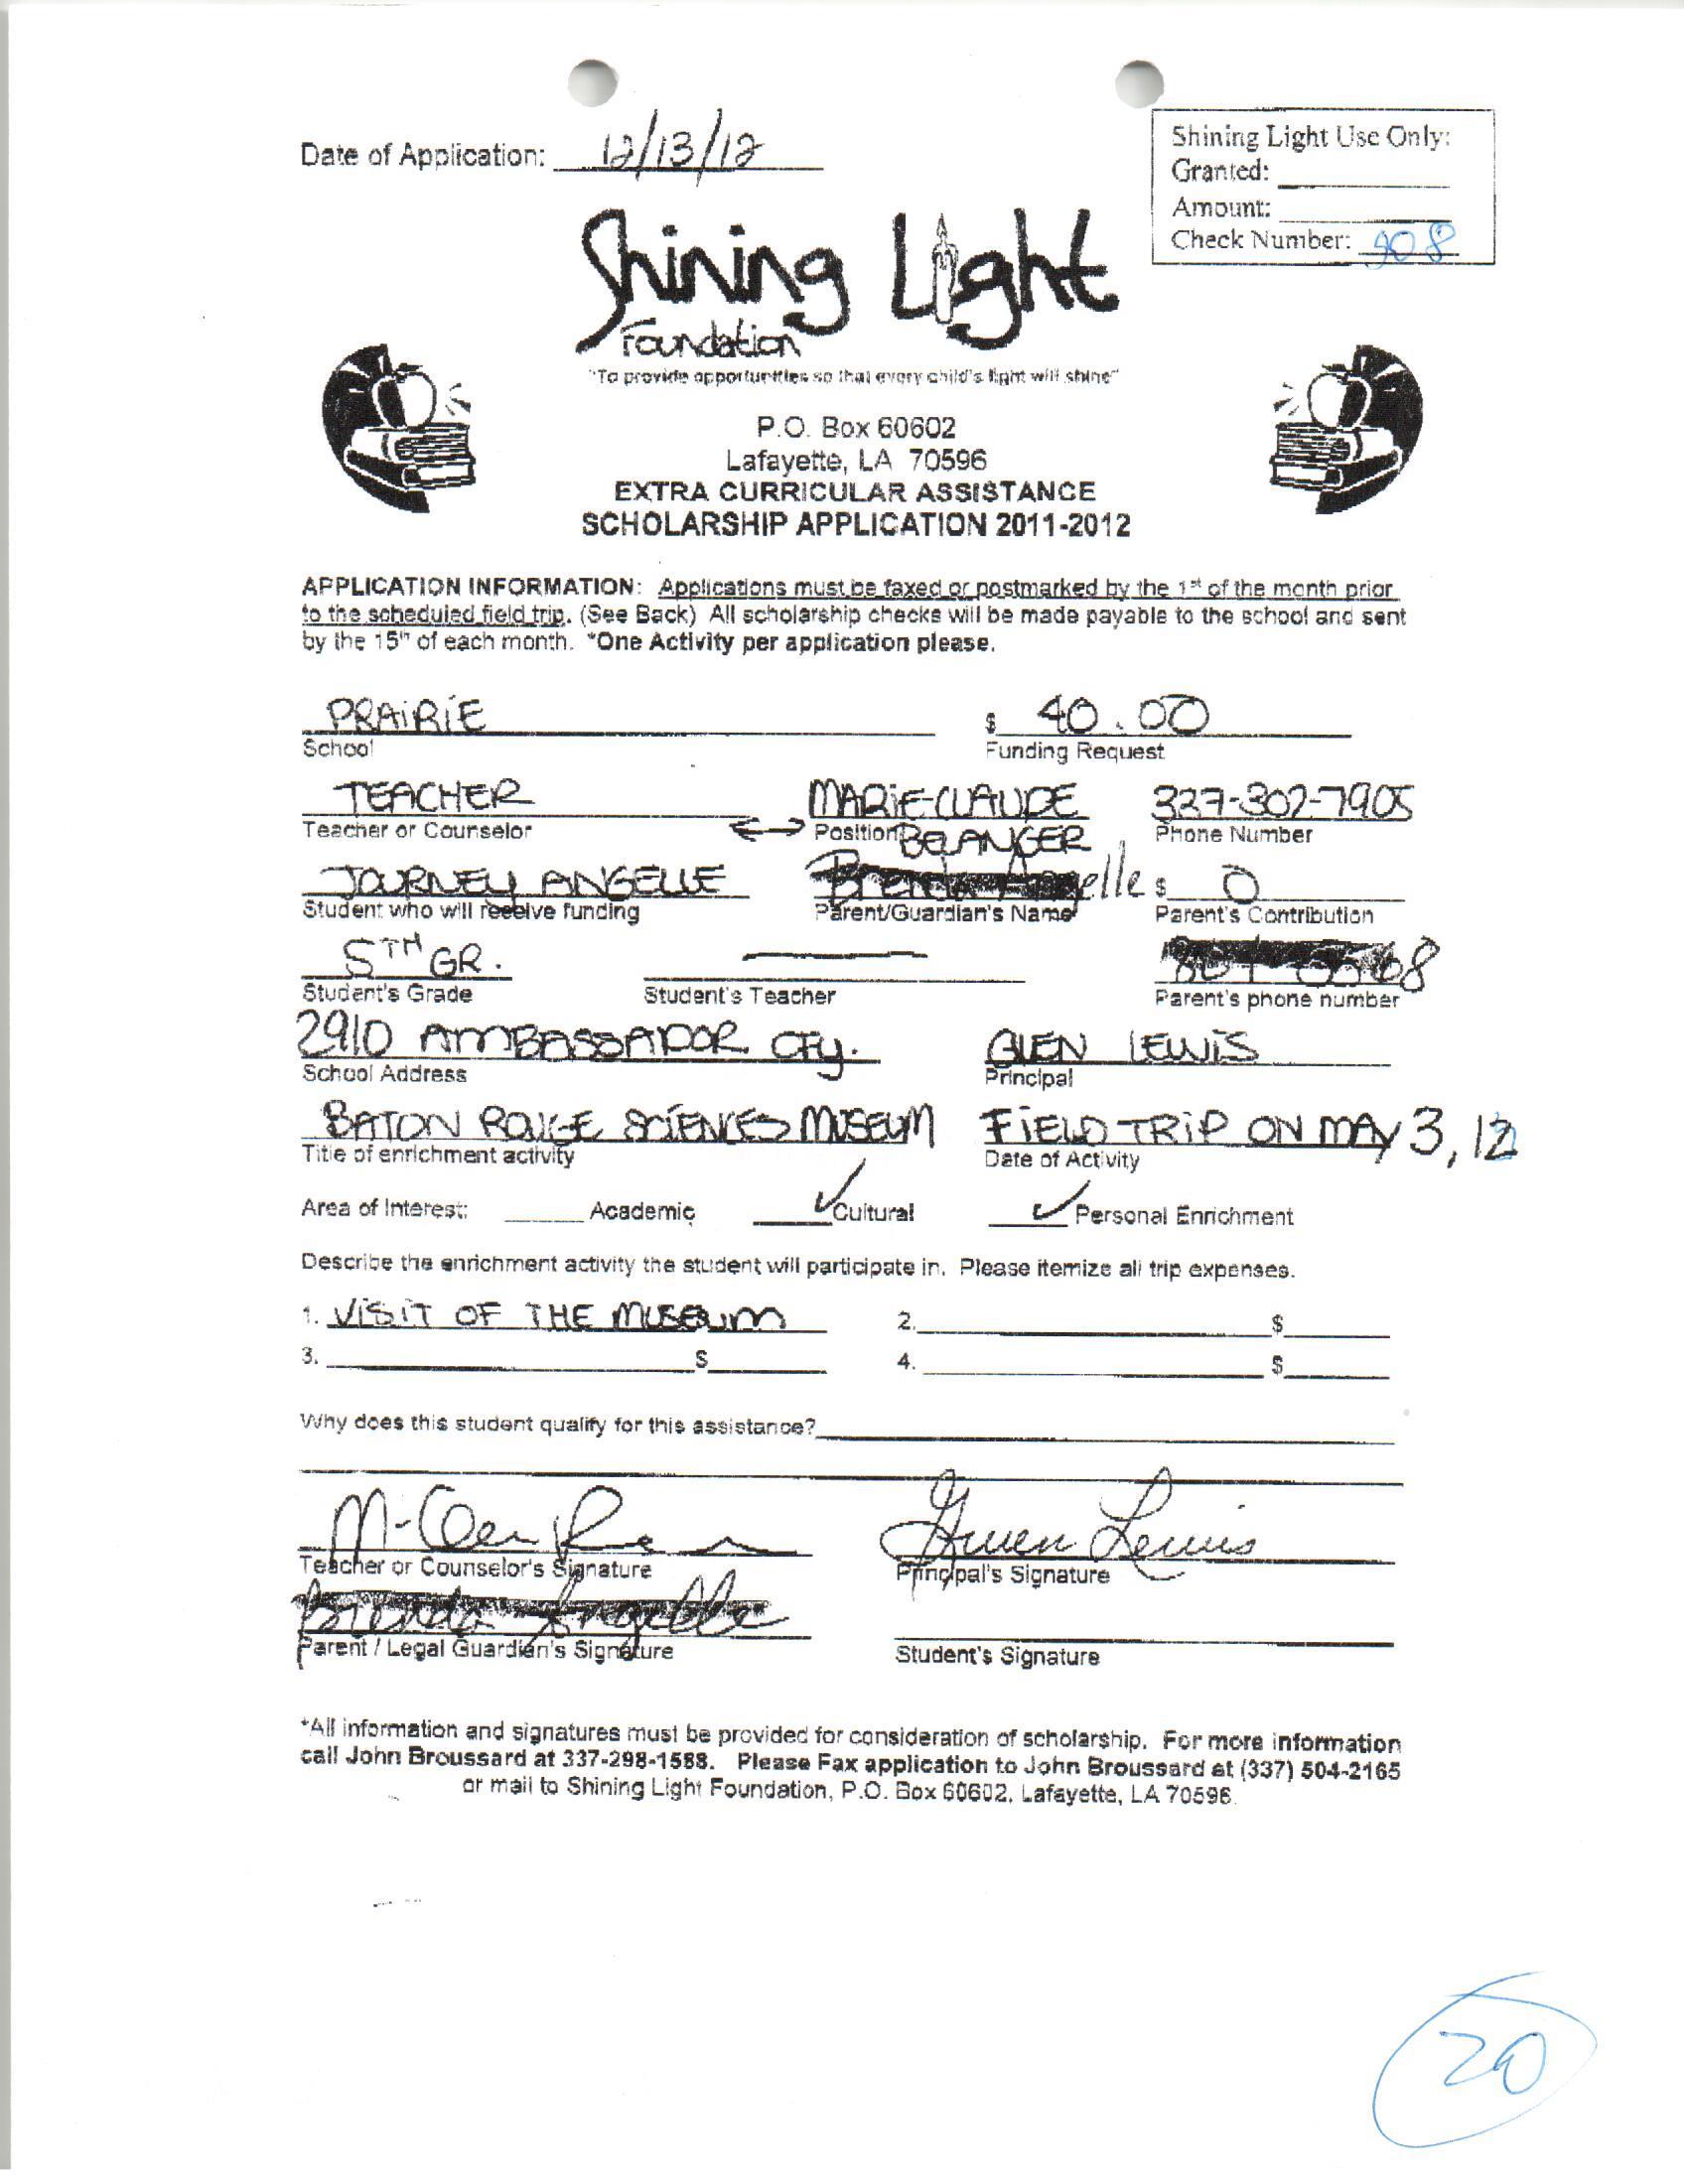 Date of Application: 12/13/12
Shining Light Use Only:
Granted:
Amount:
Check Number: 908
Shining Light
Foundation
"To provide opportunities so that every child's light will shine"
P.O. Box 60602
Lafayette, LA 70596
EXTRA CURRICULAR ASSISTANCE
SCHOLARSHIP APPLICATION 2011-2012
APPLICATION INFORMATION: Applications must be faxed or postmarked by the 1st of the month prior
to the scheduled field trip. (See Back) All scholarship checks will be made payable to the school and sent
by the 15th of each month. *One Activity per application please.
PRAIRIE $ 40.00
School Funding Request
TEACHER MARIE-CLAUDE 337-302-7905
Teacher or Counselor Position BELANGER Phone Number
JOURNEY ANGELLE Brenda Angelle $ 0
Student who will receive funding Parent/Guardian's Name Parent's Contribution
5TH GR.
Student's Grade Student's Teacher Parent's phone number
2910 AMBASSADOR CFY. GLEN LEWIS
School Address Principal
BATON ROUGE SCIENCES MUSEUM FIELD TRIP ON MAY 3, 12
Title of enrichment activity Date of Activity
Area of Interest: Academic Cultural Personal Enrichment
Describe the enrichment activity the student will participate in. Please itemize all trip expenses.
1. VISIT OF THE MUSEUM 2. $
3. $ 4. $
Why does this student qualify for this assistance?
Gwen Lewis
Teacher or Counselor's Signature Principal's Signature
Brenda Angelle
Parent / Legal Guardian's Signature Student's Signature
*All information and signatures must be provided for consideration of scholarship. For more information
call John Broussard at 337-298-1588. Please Fax application to John Broussard at (337) 504-2165
or mail to Shining Light Foundation, P.O. Box 60602, Lafayette, LA 70596
20